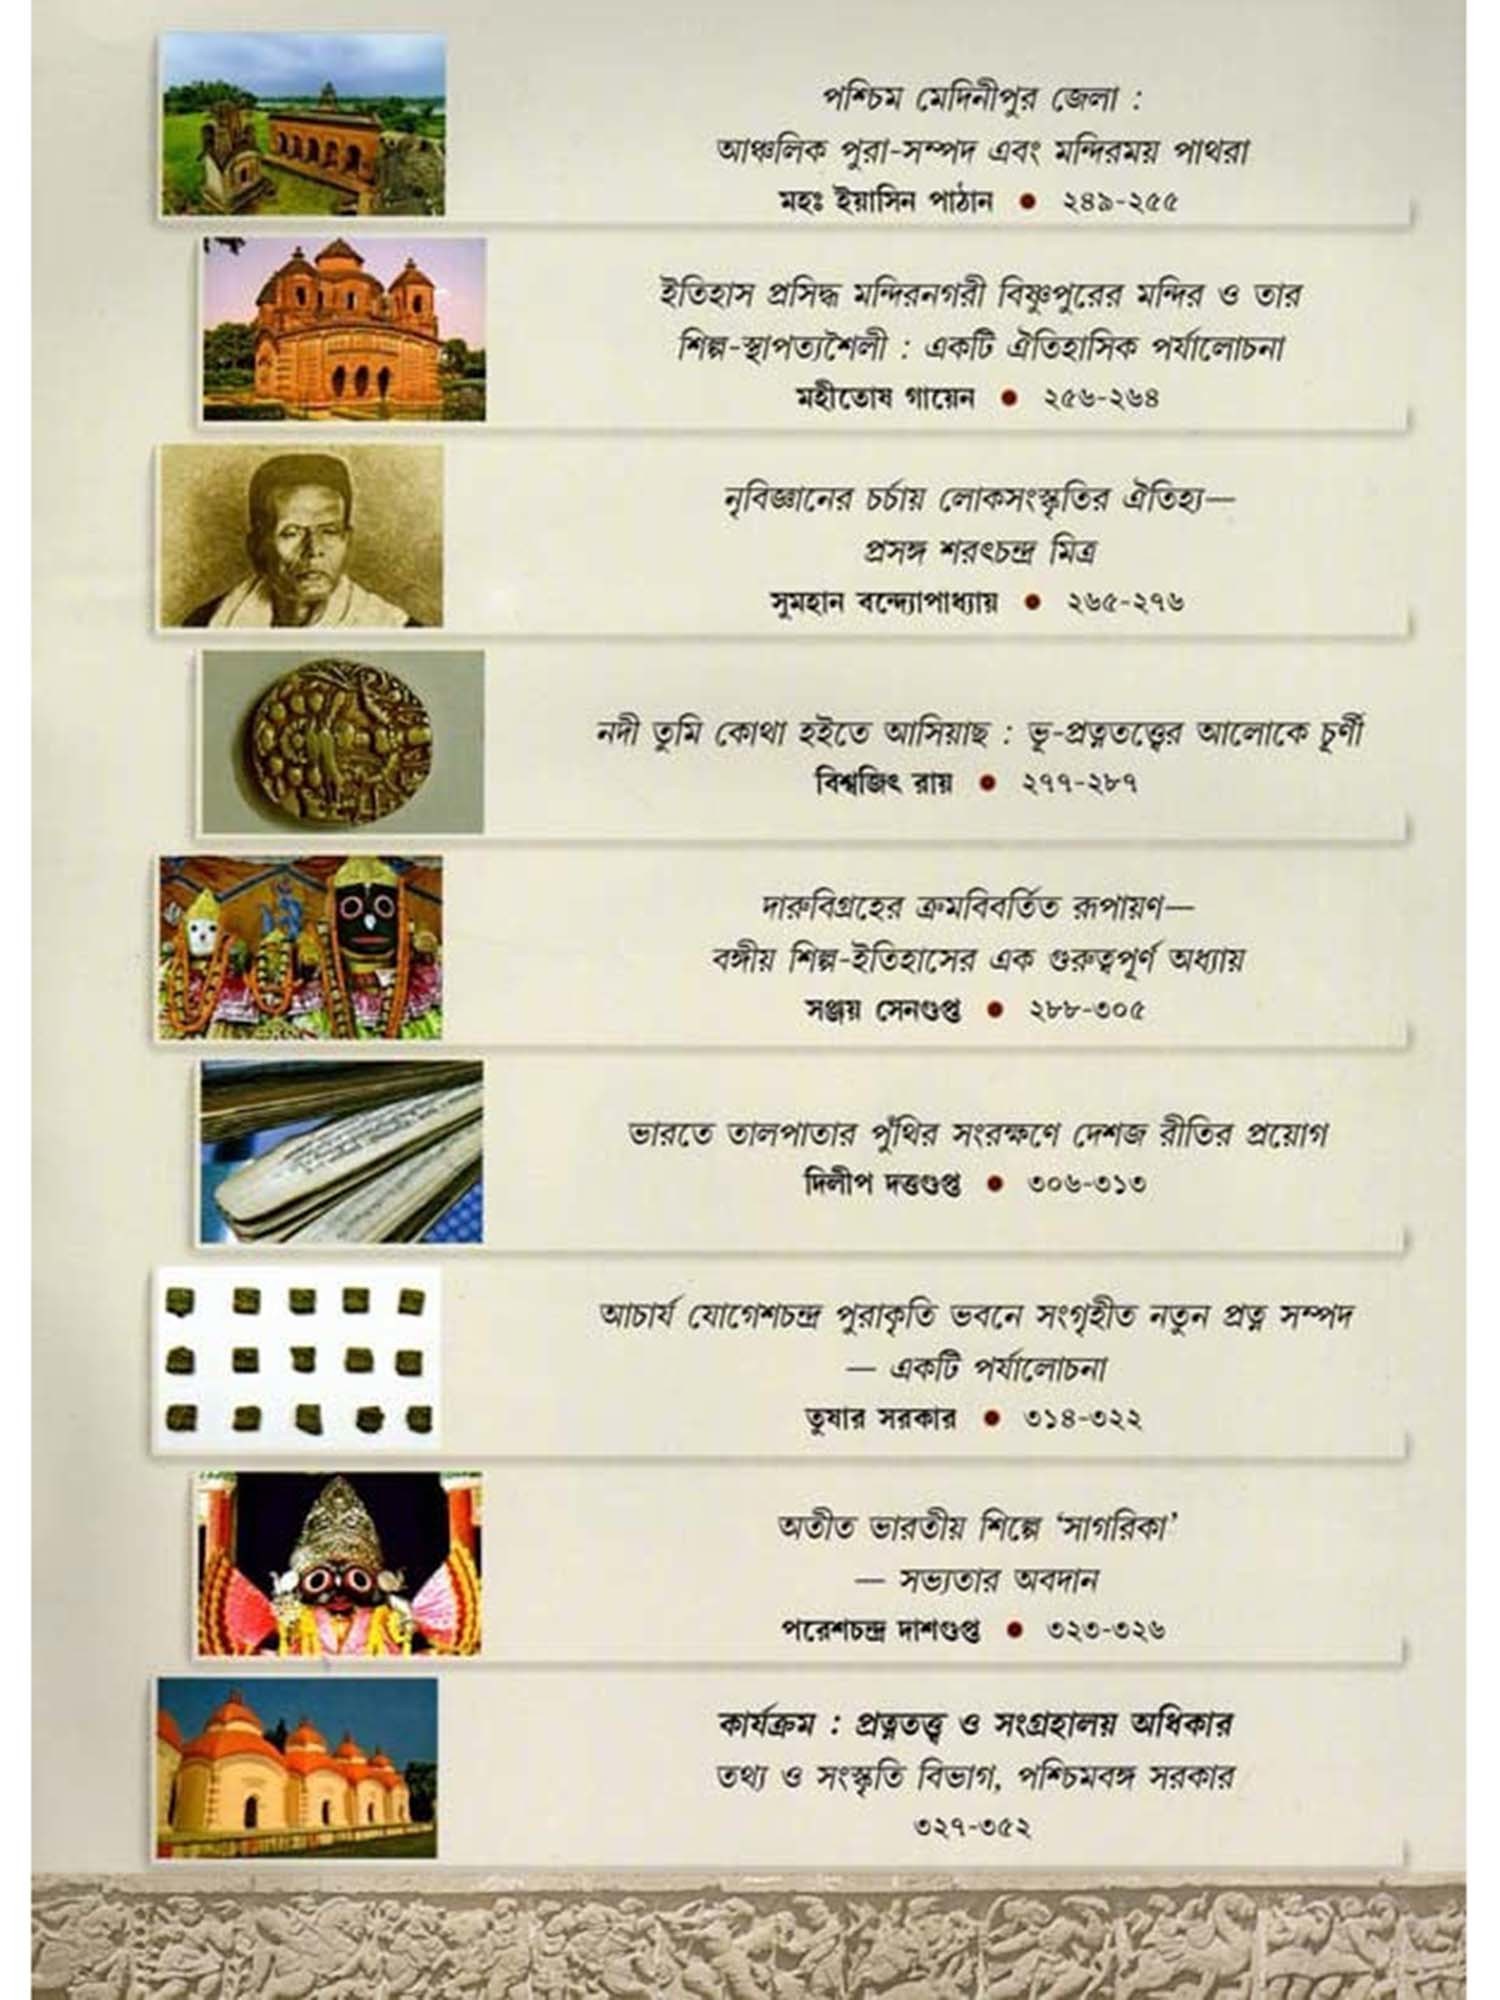 পশ্চিম মেদিনীপুর জেলা :
আঞ্চলিক পুরা-সম্পদ এবং মন্দিরময় পাথরা
মহঃ ইয়াসিন পাঠান ● ২৪৯-২৫৫
ইতিহাস প্রসিদ্ধ মন্দিরনগরী বিষ্ণুপুরের মন্দির ও তার
শিল্প-স্থাপত্যশৈলী : একটি ঐতিহাসিক পর্যালোচনা
মহীতোষ গায়েন ● ২৫৬-২৬৪
নৃবিজ্ঞানের চর্চায় লোকসংস্কৃতির ঐতিহ্য—
প্রসঙ্গ শরৎচন্দ্র মিত্র
সুমহান বন্দ্যোপাধ্যায় ● ২৬৫-২৭৬
নদী তুমি কোথা হইতে আসিয়াছ : ভূ-প্রত্নতত্ত্বের আলোকে চূর্ণী
বিশ্বজিৎ রায় ● ২৭৭-২৮৭
দারুবিগ্রহের ক্রমবিবর্তিত রূপায়ণ—
বঙ্গীয় শিল্প-ইতিহাসের এক গুরুত্বপূর্ণ অধ্যায়
সঞ্জয় সেনগুপ্ত ● ২৮৮-৩০৫
ভারতে তালপাতার পুঁথির সংরক্ষণে দেশজ রীতির প্রয়োগ
দিলীপ দত্তগুপ্ত ● ৩০৬-৩১৩
আচার্য যোগেশচন্দ্র পুরাকৃতি ভবনে সংগৃহীত নতুন প্রত্ন সম্পদ
— একটি পর্যালোচনা
তুষার সরকার ● ৩১৪-৩২২
অতীত ভারতীয় শিল্পে ‘সাগরিকা’
— সভ্যতার অবদান
পরেশচন্দ্র দাশগুপ্ত ● ৩২৩-৩২৬
কার্যক্রম : প্রত্নতত্ত্ব ও সংগ্রহালয় অধিকার
তথ্য ও সংস্কৃতি বিভাগ, পশ্চিমবঙ্গ সরকার
৩২৭-৩৫২